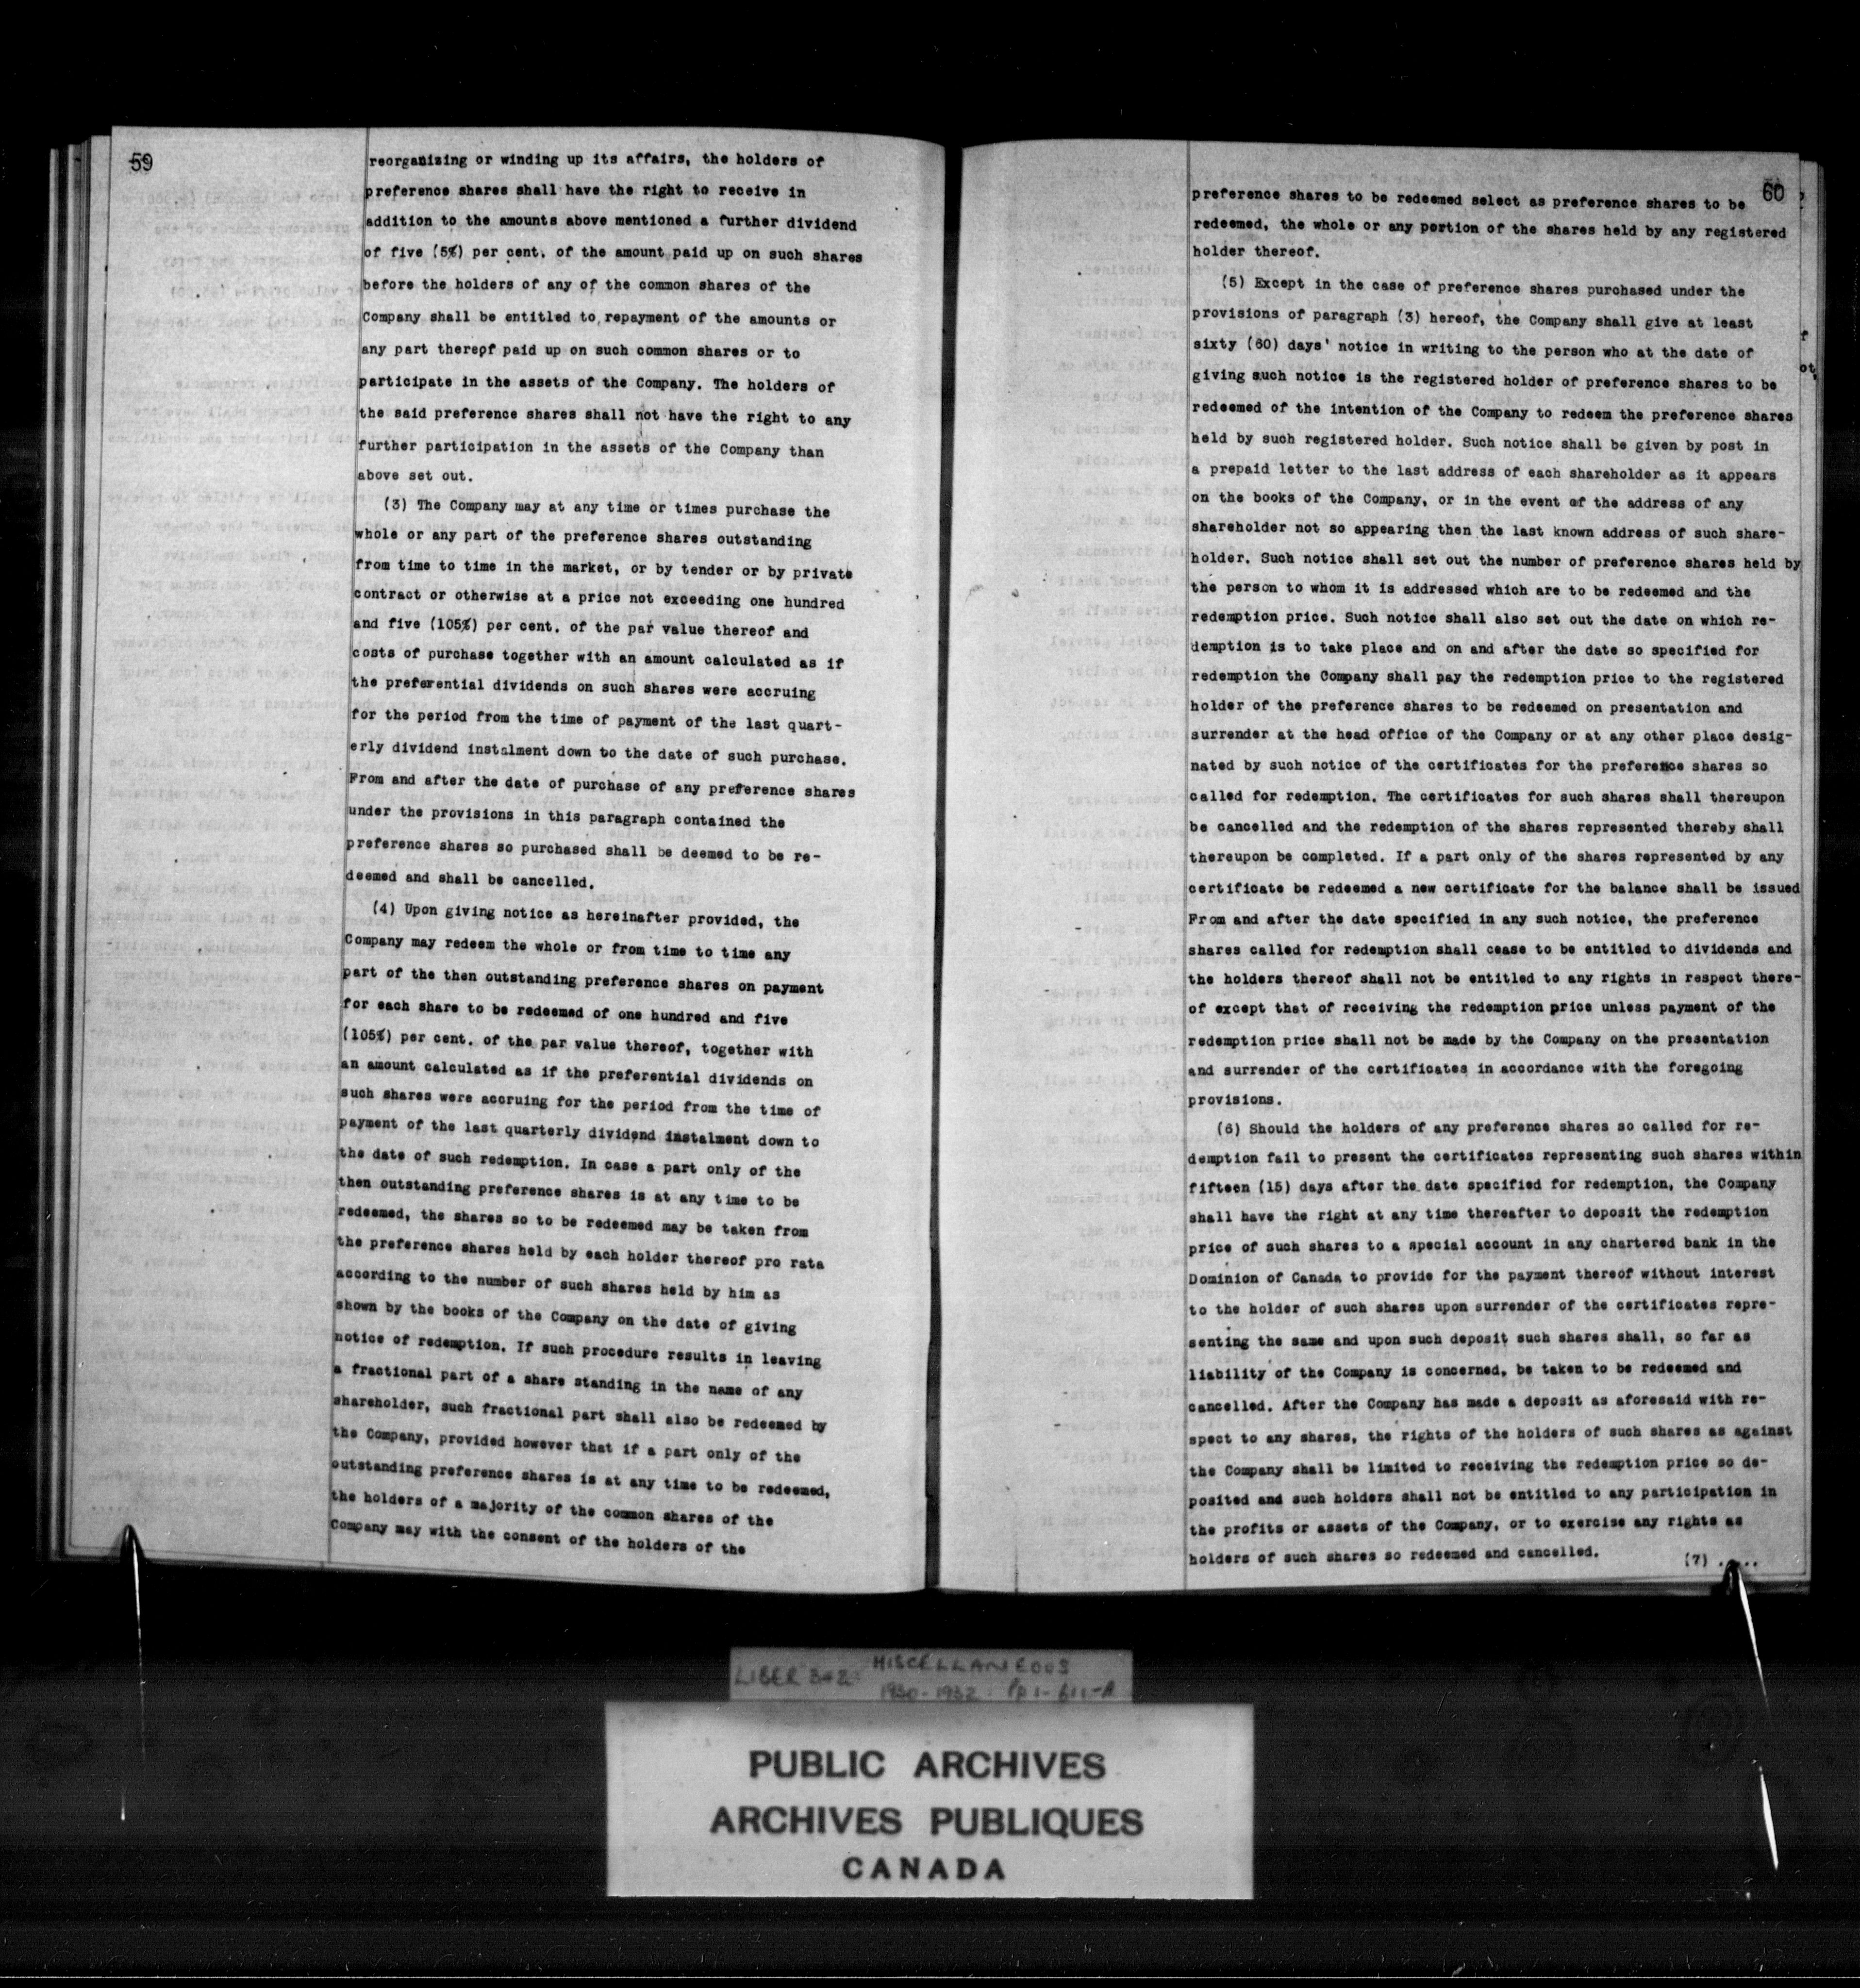 59
reorganizing or winding up its affairs, the holders of
preference shares shall have the right to receive in
addition to the amounts above mentioned a further dividend
of five (5%) per cent. of the amount paid up on such shares
before the holders of any of the common shares of the
Company shall be entitled to repayment of the amounts or
any part thereof paid up on such common shares or to
participate in the assets of the Company. The holders of
the said preference shares shall not have the right to any
further participation in the assets of the Company than
above set out.
(3) The Company may at any time or times purchase the
whole or any part of the preference shares outstanding
from time to time in the market, or by tender or by private
contract or otherwise at a price not exceeding one hundred
and five (105%) per cent. of the par value thereof and
costs of purchase together with an amount calculated as if
the preferential dividends on such shares were accruing
for the period from the time of payment of the last quart-
erly dividend instalment down to the date of such purchase.
From and after the date of purchase of any preference shares
under the provisions in this paragraph contained the
preference shares so purchased shall be deemed to be re-
deemed and shall be cancelled.
(4) Upon giving notice as hereinafter provided, the
Company may redeem the whole or from time to time any
part of the then outstanding preference shares on payment
for each share to be redeemed of one hundred and five
(105%) per cent. of the par value thereof, together with
an amount calculated as if the preferential dividends on
such shares were accruing for the period from the time of
payment of the last quarterly dividend instalment down to
the date of such redemption. In case a part only of the
then outstanding preference shares is at any time to be
redeemed, the shares so to be redeemed may be taken from
the preference shares held by each holder thereof pro rata
according to the number of such shares held by him as
shown by the books of the Company on the date of giving
notice of redemption. If such procedure results in leaving
a fractional part of a share standing in the name of any
shareholder, such fractional part shall also be redeemed by
the Company, provided however that if a part only of the
outstanding preference shares is at any time to be redeemed,
the holders of a majority of the common shares of the
Company may with the consent of the holders of the
60
preference shares to be redeemed select as preference shares to be
redeemed, the whole or any portion of the shares held by any registered
holder thereof.
(5) Except in the case of preference shares purchased under the
provisions of paragraph (3) hereof, the Company shall give at least
sixty (60) days' notice in writing to the person who at the date of
giving such notice is the registered holder of preference shares to be
redeemed of the intention of the Company to redeem the preference shares
held by such registered holder. Such notice shall be given by post in
a prepaid letter to the last address of each shareholder as it appears
on the books of the Company, or in the event of the address of any
shareholder not so appearing then the last known address of such share-
holder. Such notice shall set out the number of preference shares held by
the person to whom it is addressed which are to be redeemed and the
redemption price. Such notice shall also set out the date on which re-
demption is to take place and on and after the date so specified for
redemption the Company shall pay the redemption price to the registered
holder of the preference shares to be redeemed on presentation and
surrender at the head office of the Company or at any other place desig-
nated by such notice of the certificates for the preference shares so
called for redemption. The certificates for such shares shall thereupon
be cancelled and the redemption of the shares represented thereby shall
thereupon be completed. If a part only of the shares represented by any
certificate be redeemed a new certificate for the balance shall be issued
From and after the date specified in any such notice, the preference
shares called for redemption shall cease to be entitled to dividends and
the holders thereof shall not be entitled to any rights in respect there-
of except that of receiving the redemption price unless payment of the
redemption price shall not be made by the Company on the presentation
and surrender of the certificates in accordance with the foregoing
provisions.
(6) Should the holders of any preference shares so called for re-
demption fail to present the certificates representing such shares within
fifteen (15) days after the date specified for redemption, the Company
shall have the right at any time thereafter to deposit the redemption
price of such shares to a special account in any chartered bank in the
Dominion of Canada to provide for the payment thereof without interest
to the holder of such shares upon surrender of the certificates repre-
senting the same and upon such deposit such shares shall, so far as
liability of the Company is concerned, be taken to be redeemed and
cancelled. After the Company has made a deposit as aforesaid with re-
spect to any shares, the rights of the holders of such shares as against
the Company shall be limited to receiving the redemption price so de-
posited and such holders shall not be entitled to any participation in
the profits or assets of the Company, or to exercise any rights as
holders of such shares so redeemed and cancelled.
(7) .....
LIBER 342: MISCELLANEOUS
1930-1932: Pp 1-611-A
PUBLIC ARCHIVES
ARCHIVES PUBLIQUES
CANADA